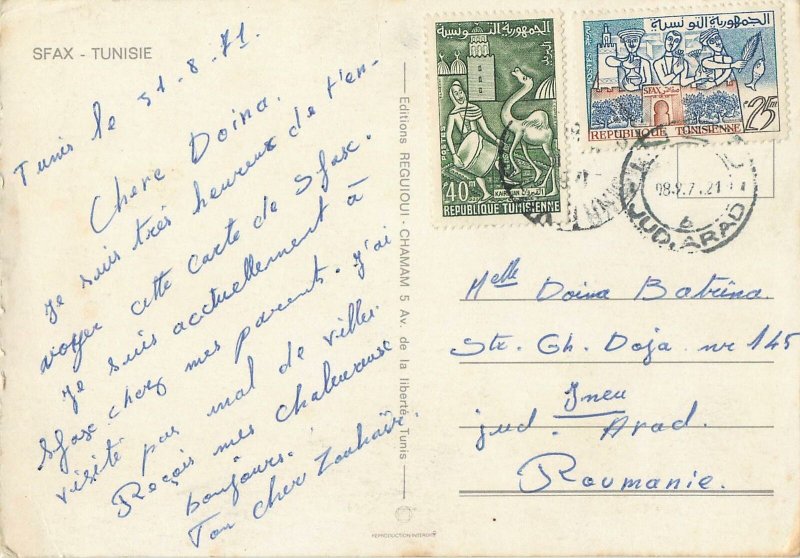 SFAX - TUNISIE
Tunis le 31.8.71.
Chere Doina.
Je suis très heureux de t'en-
voyer cette carte de Sfax.
Je suis acctuellement à
Sfax chez mes parent. J'ai
visité pas mal de villes
Reçois mes chaleureuse
bonjours.
Ton cher Zouhaïr
Editions REGUIOUI - CHAMAM 5 Av. de la liberté Tunis
REPRODUCTION INTERDITE
الجمهورية التونسية
POSTES
40m
KAIROUAN
القيروان
REPUBLIQUE TUNISIENNE
الجمهورية التونسية
POSTES
SFAX صفاقس
25m
REPUBLIQUE TUNISIENNE
JUD. ARAD
b
Melle Doina Batrîna
Str. Gh. Doja nr 145
Ineu
jud. Arad.
Roumanie.